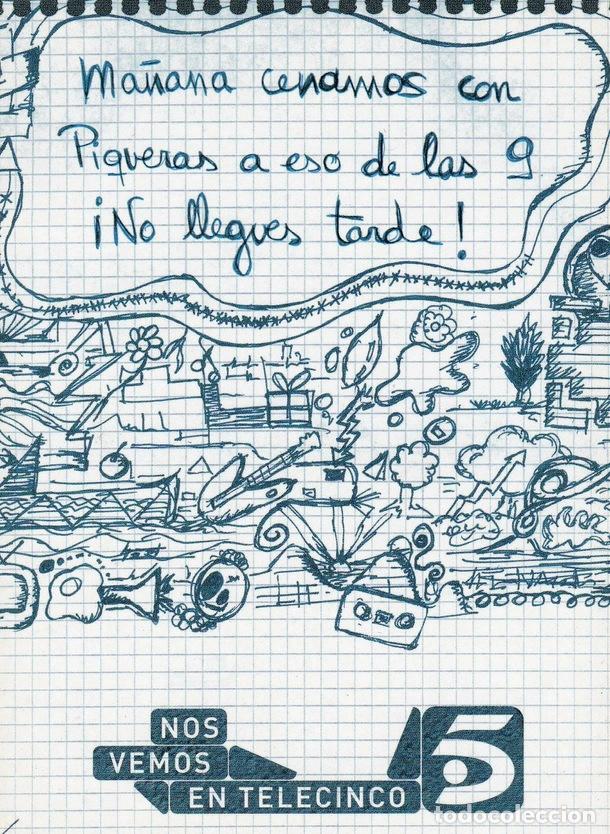 Mañana cenamos con
Piqueras a eso de las 9
¡No llegues tarde!
NOS
VEMOS
EN TELECINCO
5
todocoleccion